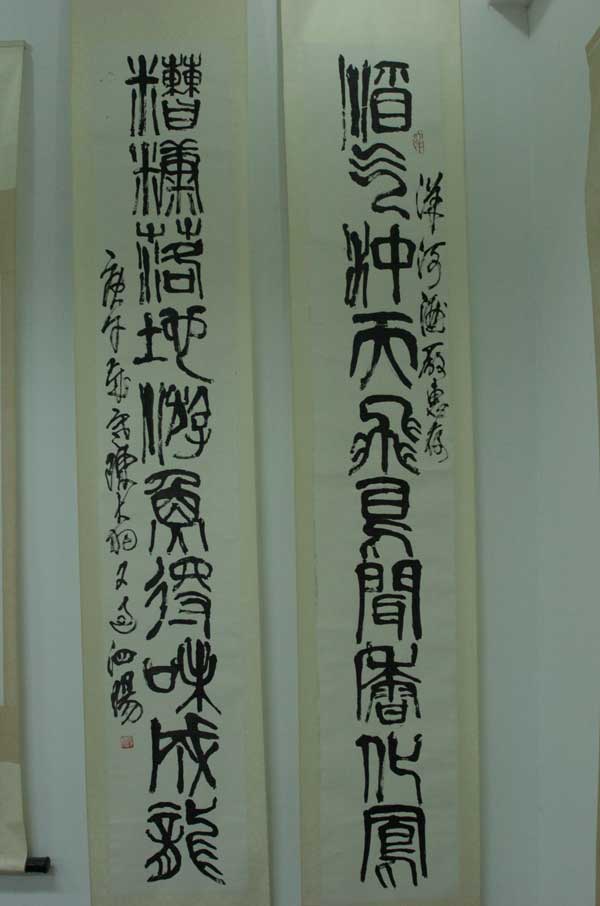 酒气沖天飛鳥聞香化鳳
洋河酒廠惠存
糟糠落地游魚得味成龍
庚午陳大羽又過泗陽